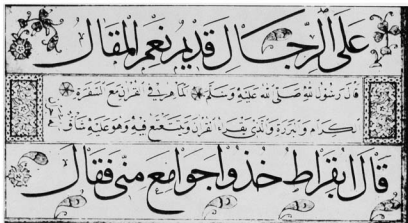 على الرجال قديم نعم المقال
قال رسول الله صلى الله عليه وسلم الماهر في القرآن مع السفرة
الكرام البررة والذي يقرء القرآن ويتتعتع فيه وهو عليه شاق
قال ابقراط خذوا جوامع مني فقال